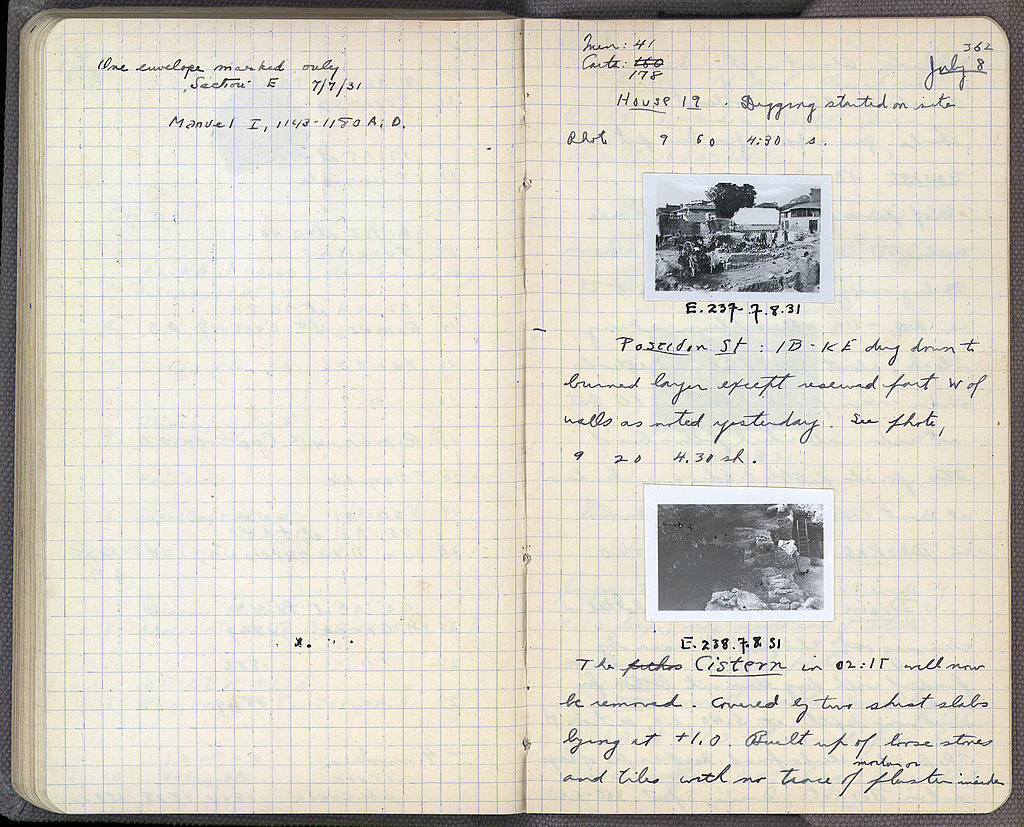 One envelope marked only
Section E 7/7/31
Manuel I, 1143-1180 A.D.
362
Men: 41
July 8
Carts: 160
178
House 19. Digging started on site
Phot 9 60 4:30 s.
E. 237-7.8.31
Poseidon St: IB-KE dug down to
burned layer except reserved part W of
walls as noted yesterday. See photo,
9 20 4.30 sh.
E. 238.7.8.31
The pithos Cistern in 02:IΓ will now
be removed. Covered by two shist slabs
lying at +1.0. Built up of loose stones
mortar or
and tiles with no trace of plaster inside